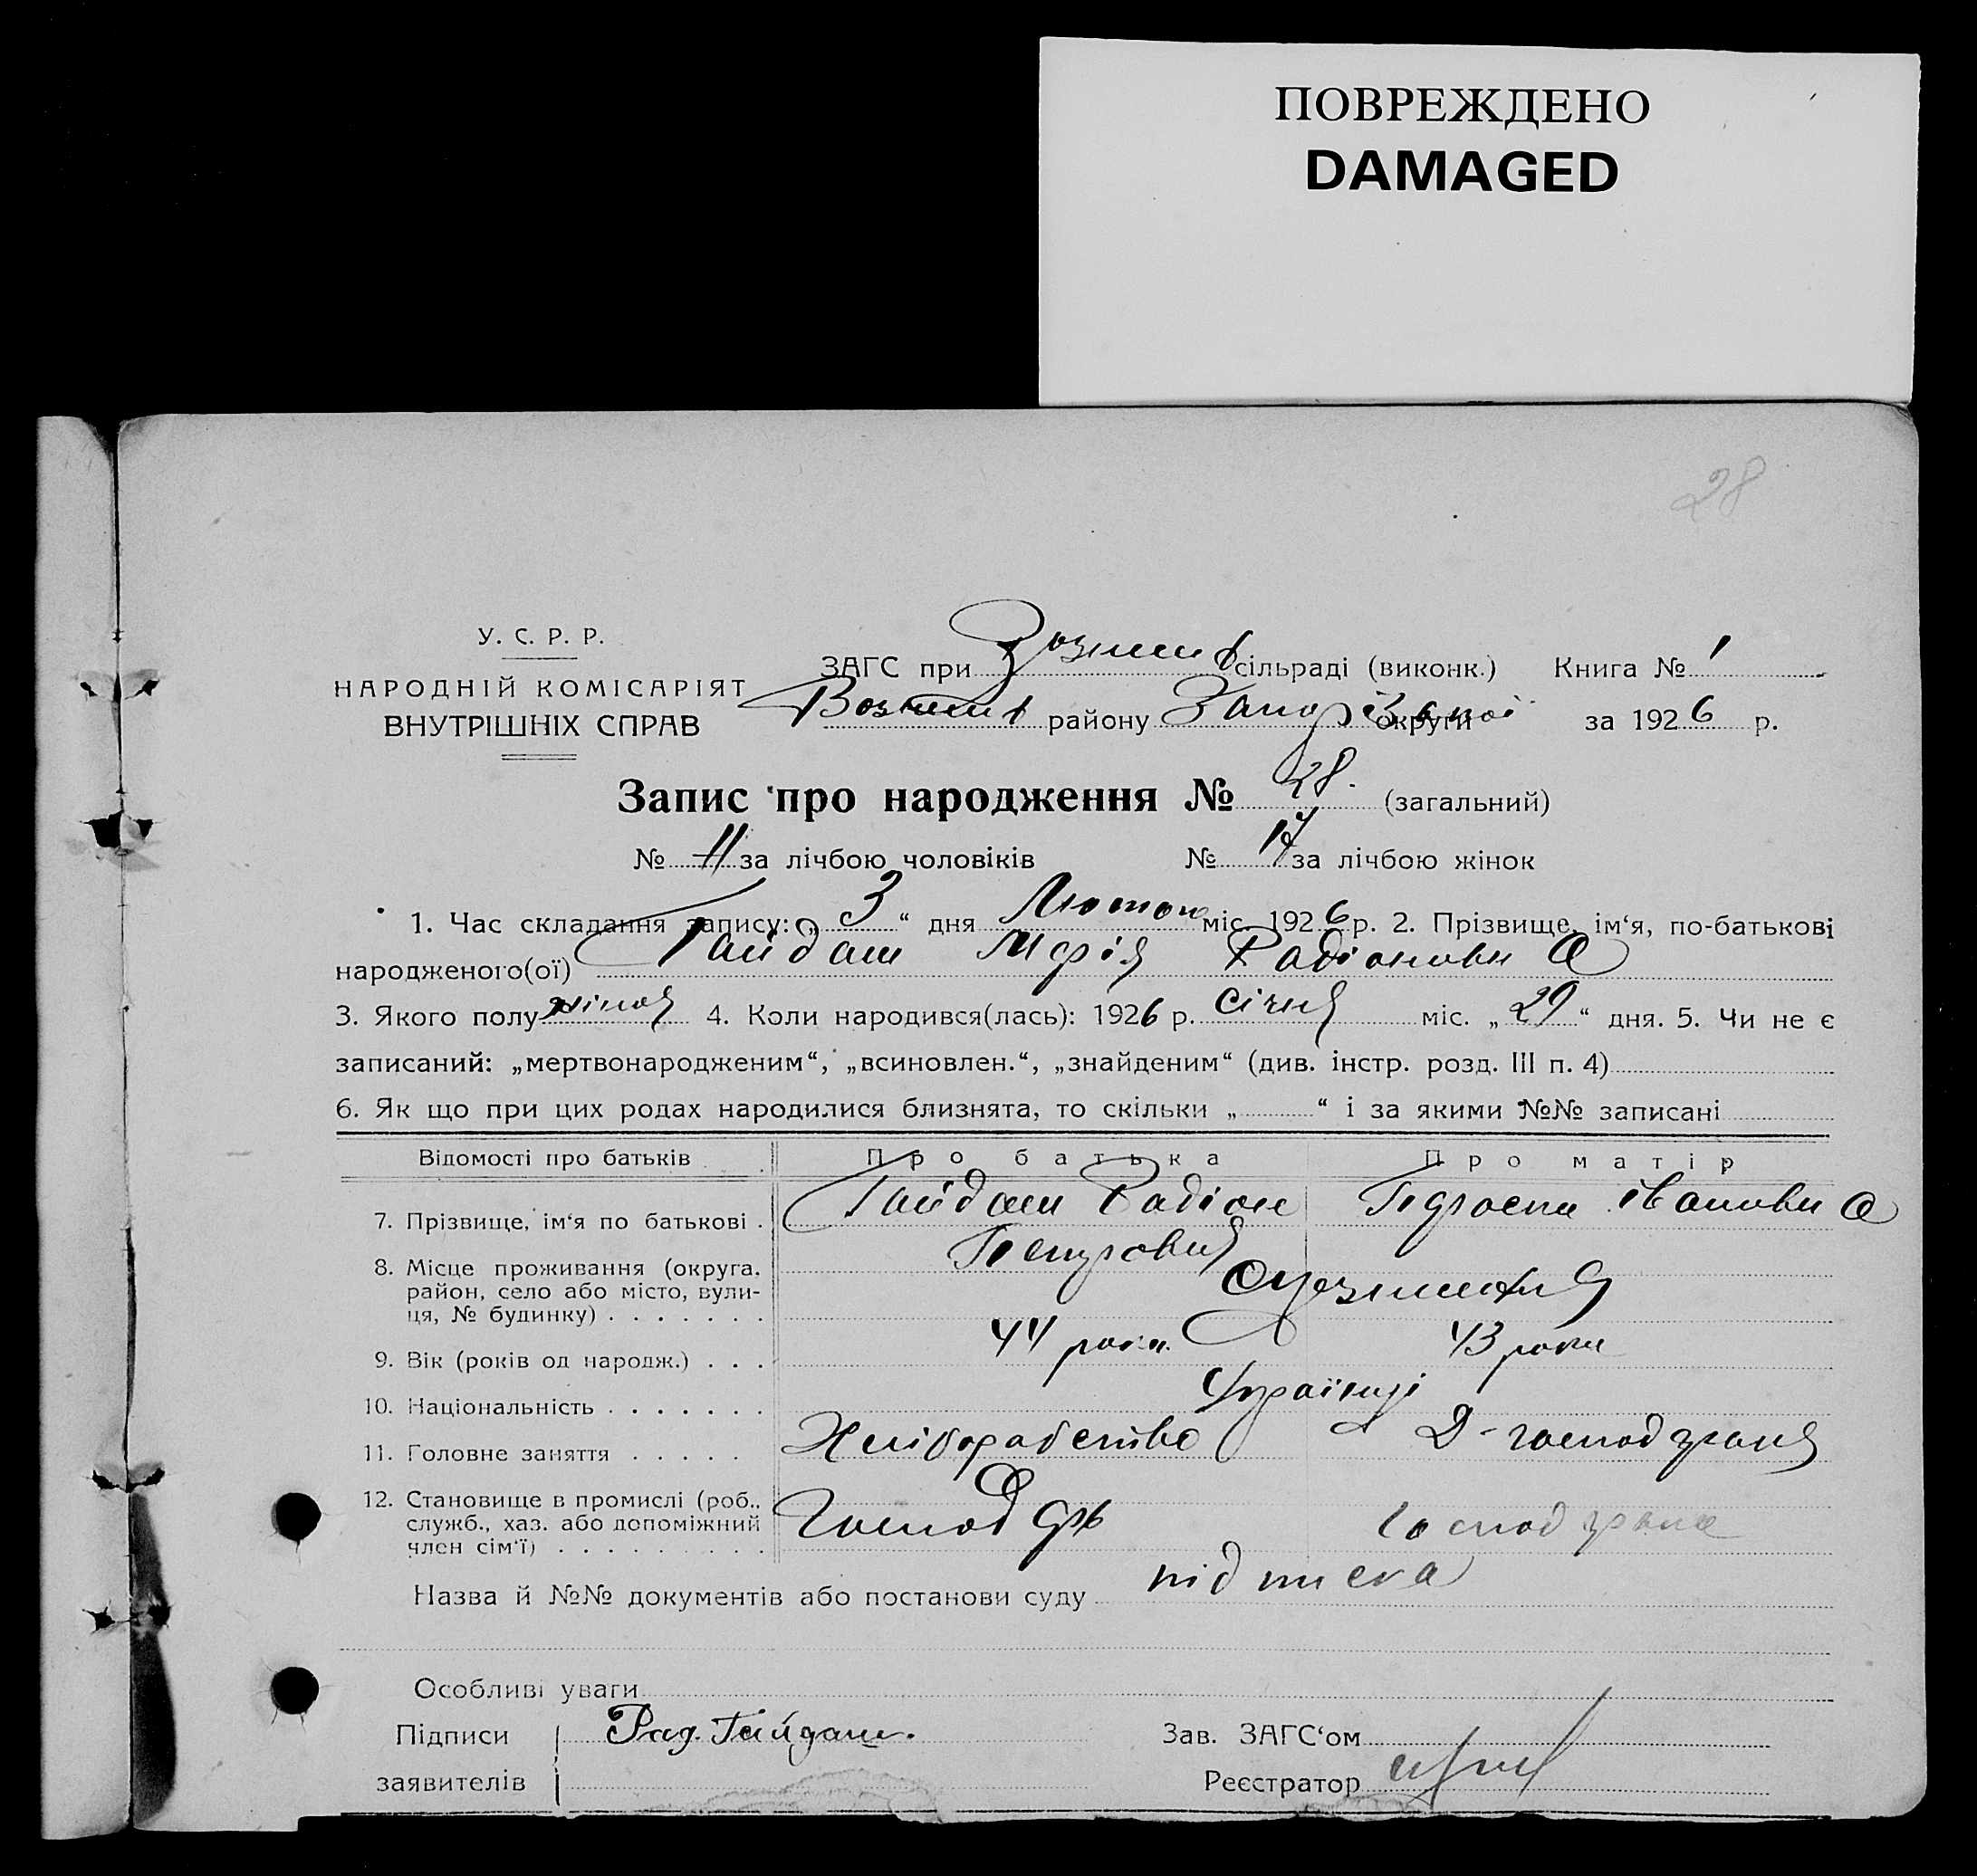 ПОВРЕЖДЕНО
DAMAGED
28
У. С. Р. Р.
НАРОДНІЙ КОМІСАРІЯТ
ВНУТРІШНІХ СПРАВ
ЗАГС при сільраді (виконк.) Книга № 1
району округи за 1926 р.
Запис про народження № 28. (загальний)
№ 11 за лічбою чоловіків № 17 за лічбою жінок
1. Час складання запису: „ 3 “ дня Лютого міс. 1926 р. 2. Прізвище, ім‘я, по-батькові
народженого(ої) Гайдаш Марія Радіоновна
3. Якого полу жіноч 4. Коли народився(лась): 1926 р. січня міс. „ 29 “ дня. 5. Чи не є
записаний: „мертвонародженим“, „всиновлен.“, „знайденим“ (див. інстр. розд. III п. 4)
6. Як що при цих родах народилися близнята, то скільки „ “ і за якими №№ записані
Відомості про батьків Про батька Про матір
7. Прізвище, ім‘я по батькові . Гайдаш Радіон Івановна
Петрович
8. Місце проживання (округа, район, село або місто, вули-
ця, № будинку) . . . . . . .
9. Вік (років од народж.) . . . 44 роки 43 роки
10. Національність . . . . . . . Українці
11. Головне заняття . . . . . Хліборобство Д-господарня
12. Становище в промислі (роб.,
служб., хаз. або допоміжний
член сім‘ї) . . . . . . . . . Господарь
Назва й №№ документів або постанови суду підписка
Особливі уваги
Підписи Рад. Гайдаш. Зав. ЗАГС‘ом
заявителів Реєстратор